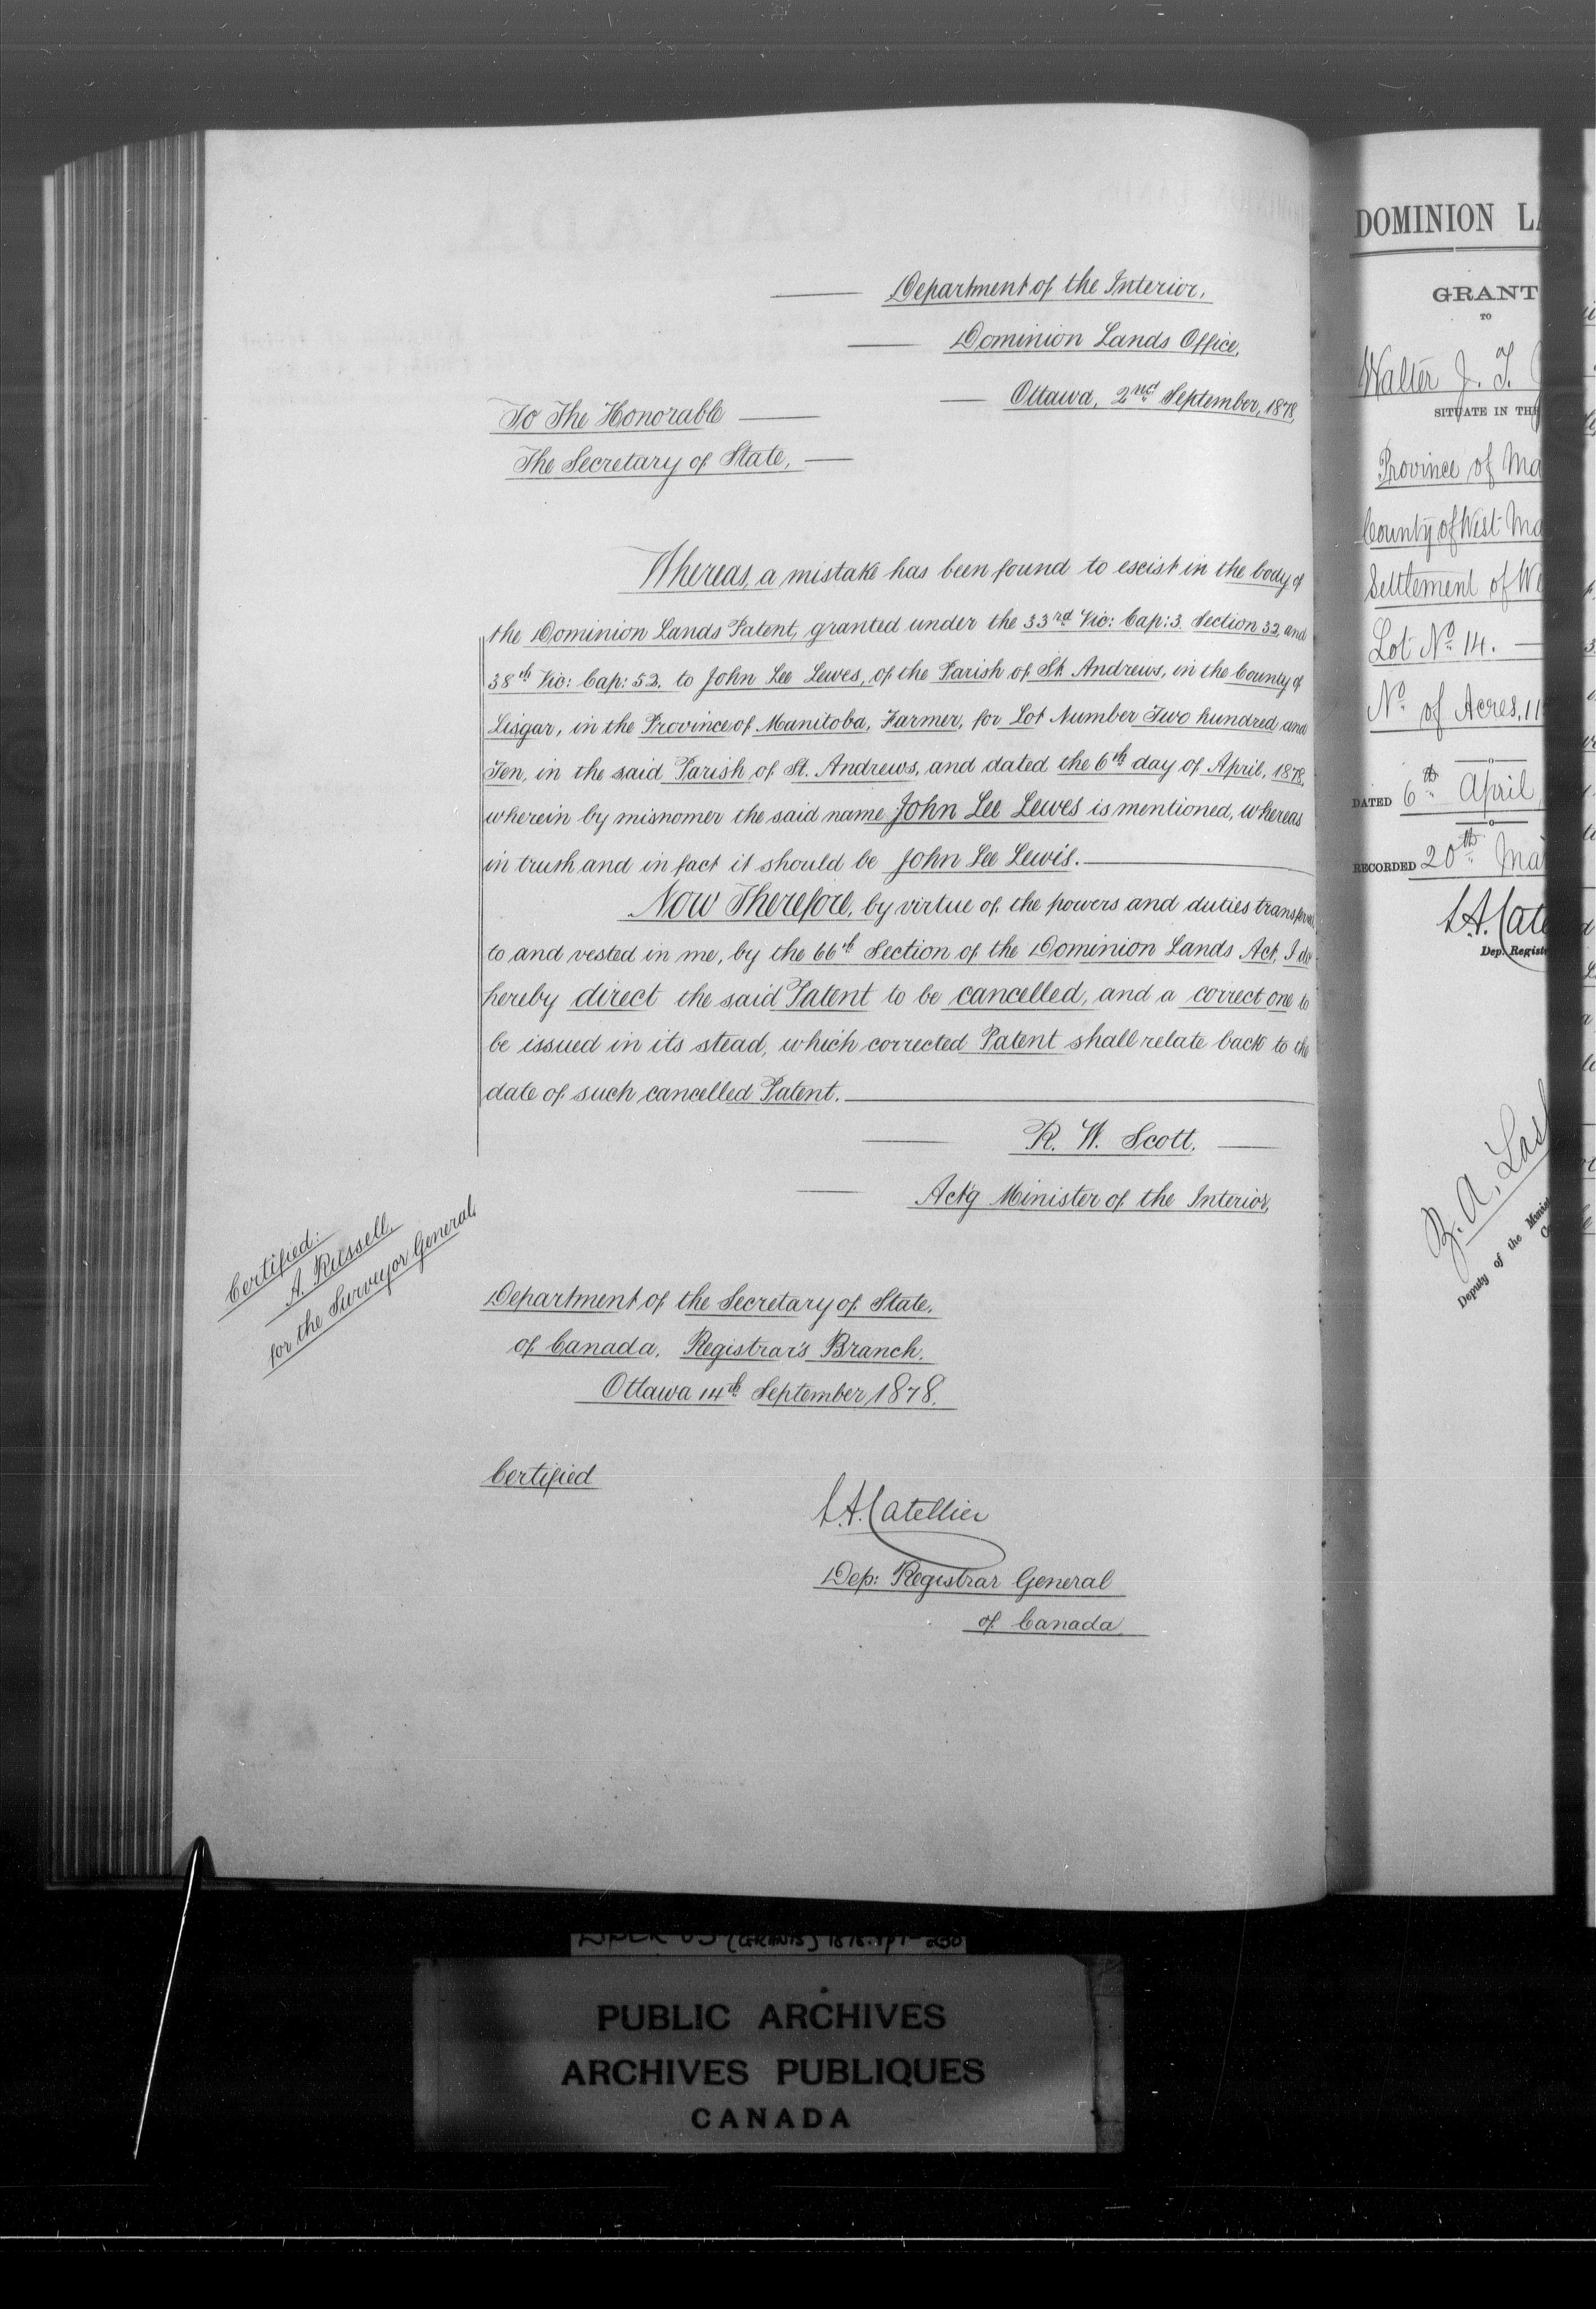 Department of the Interior,
Dominion Lands Office,
Ottawa, 2nd September, 1878
To The Honorable
The Secretary of State,
Whereas, a mistake has been found to escist in the body of
the Dominion Lands Patent, granted under the 33rd Vic: Cap: 3. Section 32, and
38th Vic: Cap: 52. to John Lee Lewes, of the Parish of St. Andrews, in the County of
Lisgar, in the Province of Manitoba, Farmer, for Lot Number Two hundred and
Ten, in the said Parish of St. Andrews, and dated the 6th day of April, 1878,
wherein by misnomer the said name John Lee Lewes is mentioned, whereas
in truth and in fact it should be John Lee Lewis.
Now Therefore, by virtue of the powers and duties transferred
to and vested in me, by the 66th Section of the Dominion Lands Act, I do
hereby direct the said Patent to be cancelled, and a correct one to
be issued in its stead, which corrected Patent shall relate back to the
date of such cancelled Patent.
R. W. Scott.
Act'g Minister of the Interior,
Certified:
A. Russell
for the Surveyor General.
Department of the Secretary of State.
of Canada. Registrar's Branch.
Ottawa 14th September 1878.
Certified
L.A. Catellier
Dep: Registrar General
of Canada
DOMINION LA
GRANT
TO
Walter J. T.
of
SITUATE IN THE
Province of Ma
County of West Ma
Settlement of We
Lot No. 14.
No. of Acres, 11
DATED 6th April
RECORDED 20th Ma
L.A. Cate
Dep. Regist
Z. A. Las
Deputy of the Minist
(GRANTS) 1878
PUBLIC ARCHIVES
ARCHIVES PUBLIQUES
CANADA